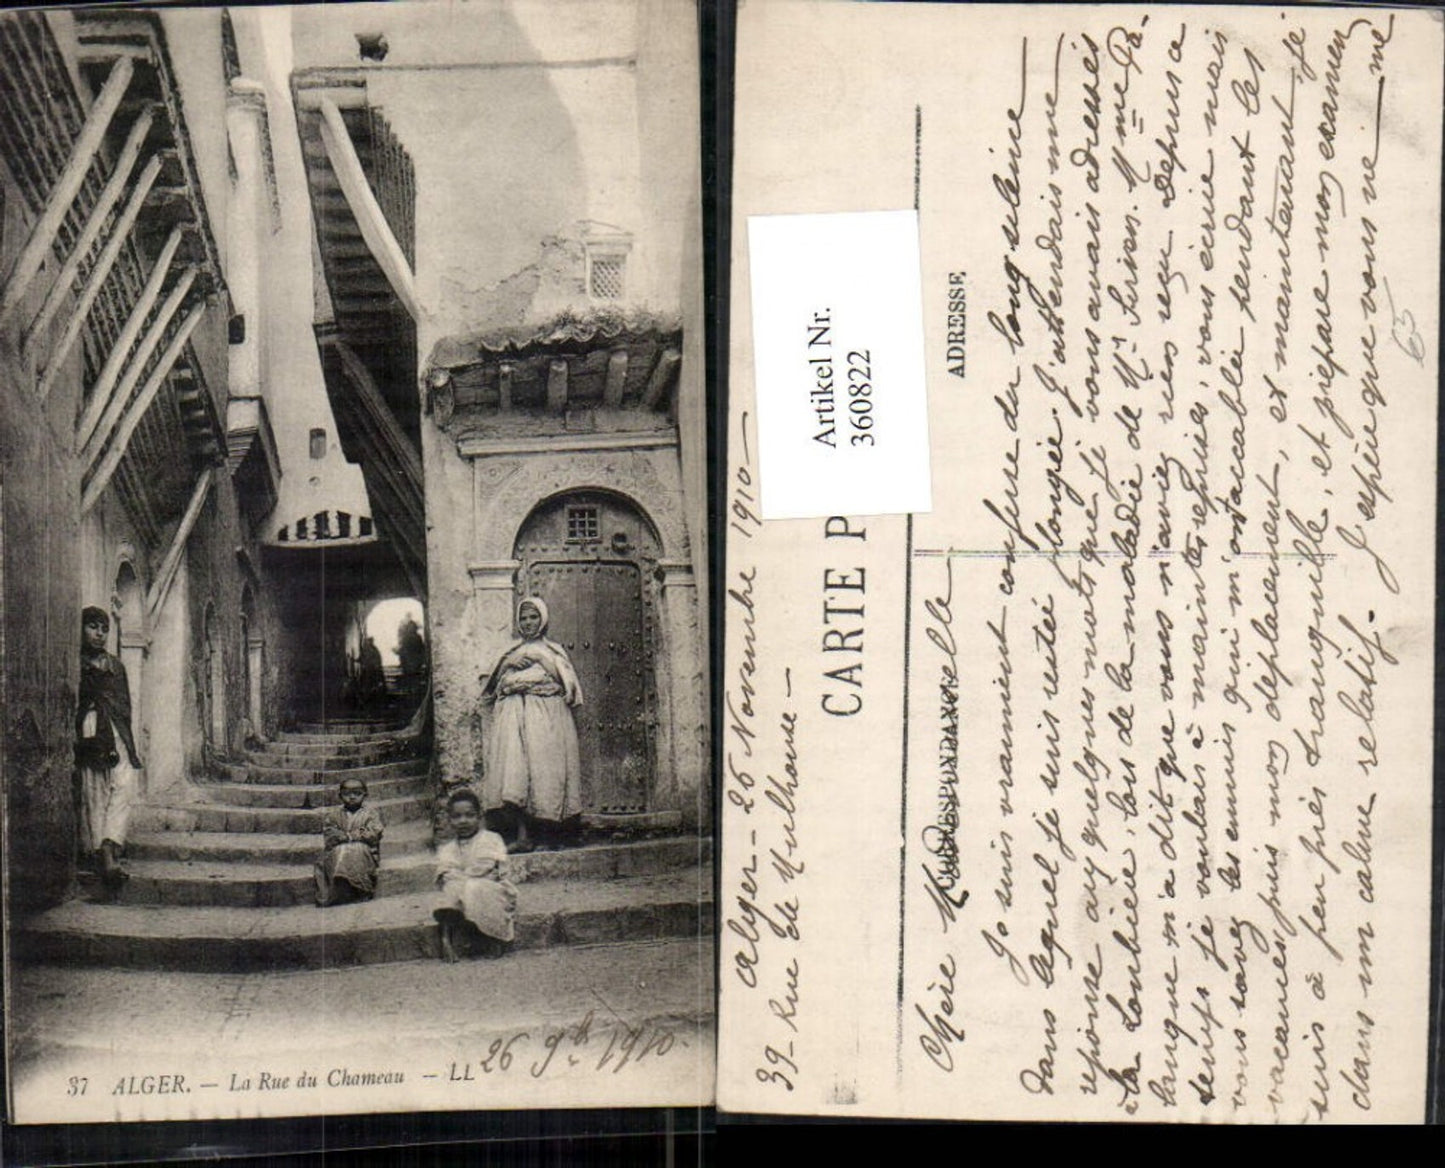 37 ALGER. — La Rue du Chameau — LL
26 9bre 1910.
Artikel Nr.
360822
Alger — 26 Novembre 1910 —
39 — Rue de Mulhouse —
CARTE P
CORRESPONDANCE
ADRESSE
Chère Mademoiselle
Je suis vraiment confuse du long silence
dans lequel je suis restée plongée. J'attendais une
réponse aux quelques mots que je vous avais adressés
à la Loubière, lors de la maladie de Mr. Mme Pa-
langue m'a dit que vous n'aviez rien reçu. Depuis ce
temps je voulais à maintes reprises, vous écrire mais
vous savez les ennuis qui m'ont accablée pendant les
vacances, puis mon déplacement, et maintenant, je
suis à peu près tranquille, et prépare mon examen
dans un calme relatif. J'espère que vous ne me